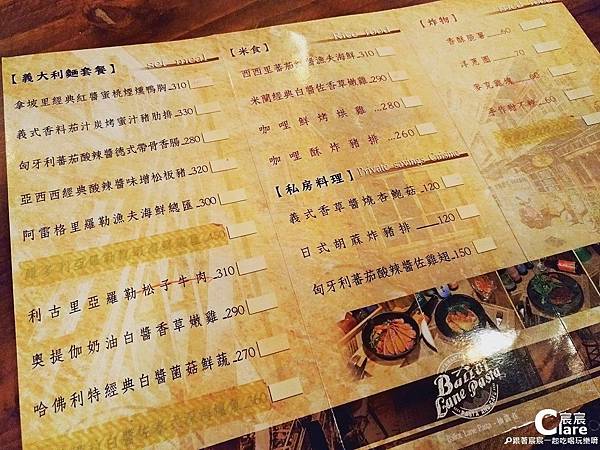 【義大利麵套餐】 Set meal
拿坡里經典紅醬蜜桃煙燻鴨胸..310
義式香料茄汁炭烤蜜汁豬肋排...330
匈牙利蕃茄酸辣醬德式帶骨香腸...280
亞西西經典酸辣醬味增松板豬...320
阿雷格里羅勒漁夫海鮮總匯...300
利古里亞羅勒松子牛肉..310
奧提伽奶油白醬香草嫩雞...290
哈佛利特經典白醬菌菇鮮蔬...270
【米食】 Rice food
西西里蕃茄紅醬漁夫海鮮...310
米蘭經典白醬佐香草嫩雞...290
咖哩鮮烤烘雞...280
咖哩酥炸豬排...260
【私房料理】 Private savings cuisine
義式香草醬燒杏鮑菇...120
日式胡蔴炸豬排...120
匈牙利蕃茄酸辣醬佐雞翅..150
【炸物】 Fried food
香酥脆薯 60
洋蔥圈 60
麥克雞塊 70
Lane Pasta
宸宸
Clare
跟著宸宸一起吃喝玩樂唷